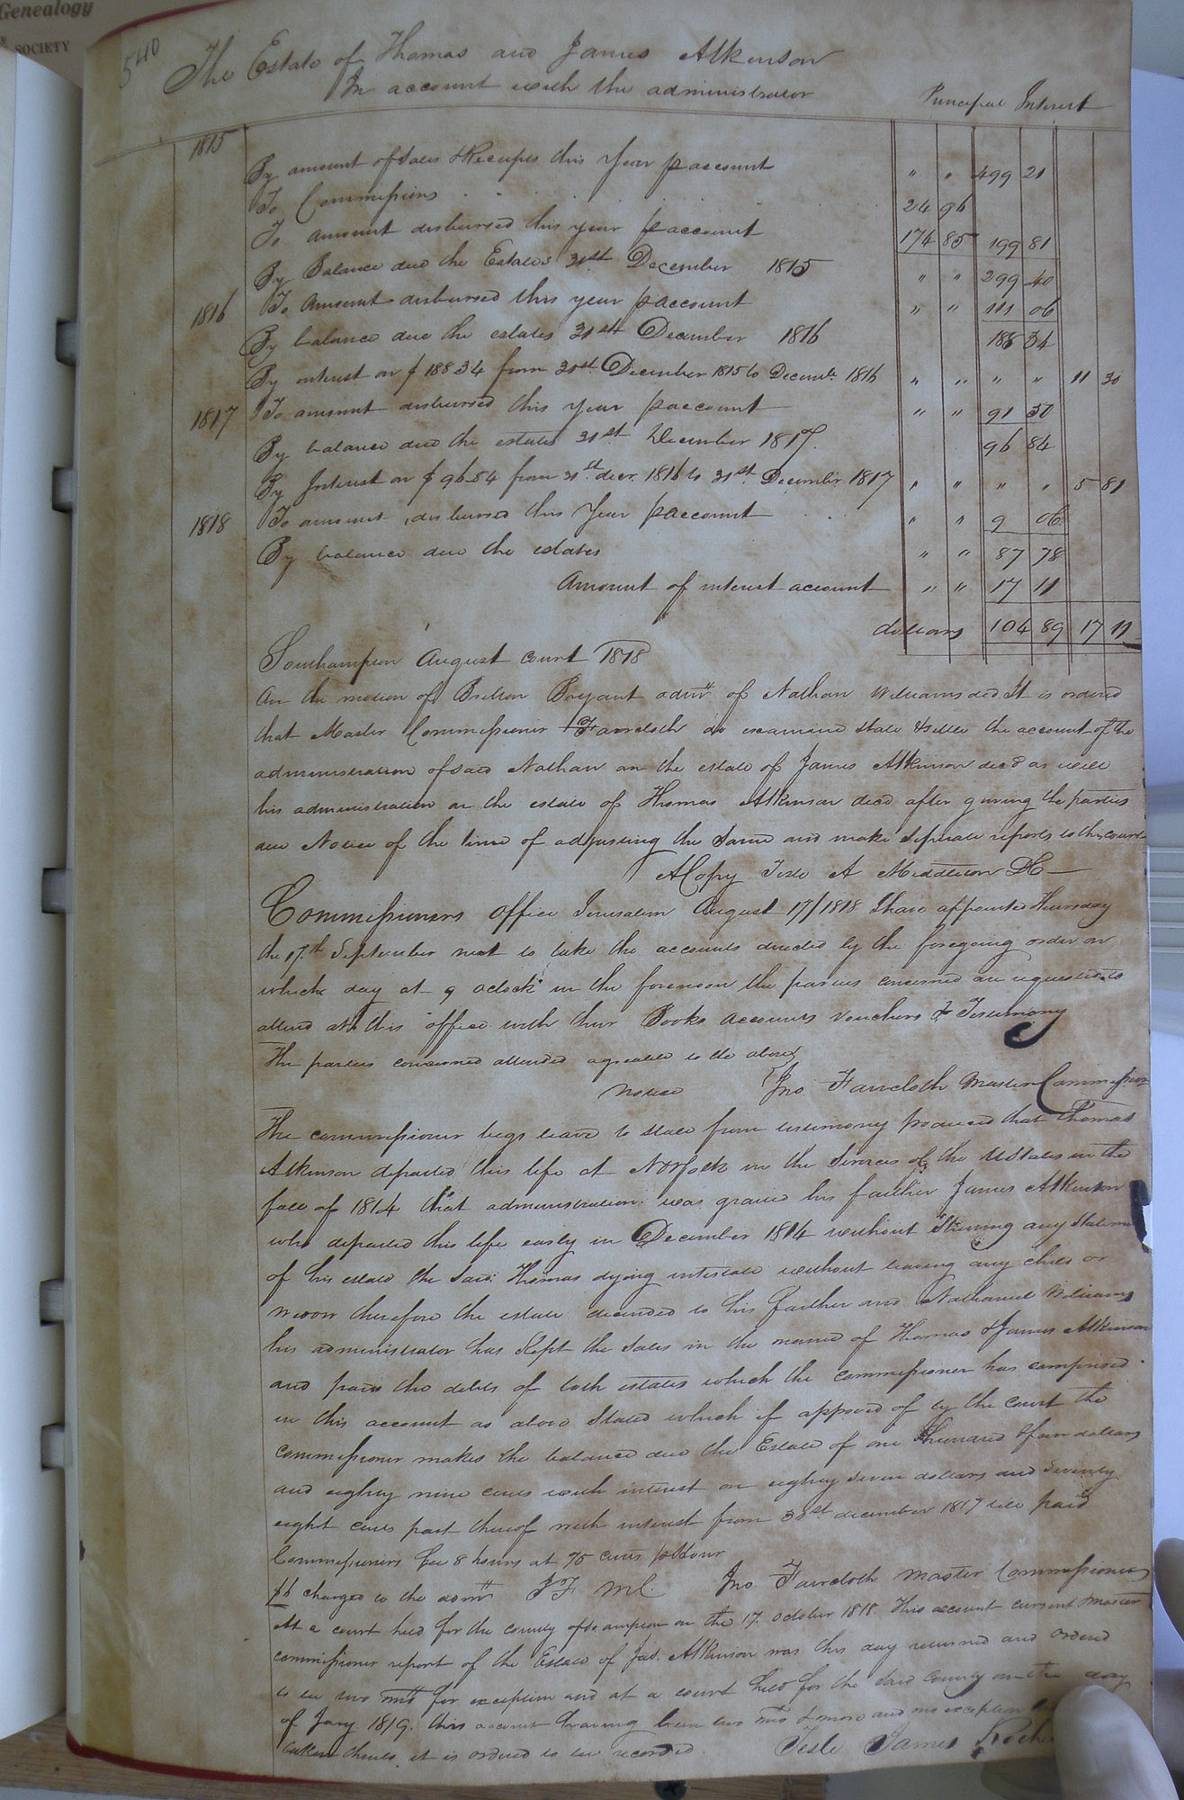 Genealogy
& SOCIETY
540
The Estate of Thomas and James Atkinson
In account with the administrator
Principal Interest
1815
By amount of Sales & Receipts this Year p account " " 499 21
To Commissions 24 96
To amount disbursed this year p account 174 85 199 81
By Balance due the Estates 31st December 1815 " " 299 40
1816 To Amount disbursed this year p account " " 111 06
By balance due the estates 31st December 1816 188 34
By interest on $ 188 34 from 31st December 1815 to Decemb. 1816 " " " " 11 30
1817 To amount disbursed this year p account " " 91 50
By balance due the estates 31st December 1817. 96 84
By Interest on $ 96 84 from 31st decr. 1816 to 31st December 1817 " " " " 5 81
1818 To amount disbursed this Year p account " " 9 06
By balance due the estates " " 87 78
Amount of interest account " " 17 11
dollars 104 89 17 11
Southampton August court 1818
On the motion of Britton Bryant admr of Nathan Williams decd It is ordered
that Master Commissioner Faircloth do examine state & settle the account of the
administration of said Nathan on the estate of James Atkinson decd as well
his administration on the estate of Thomas Atkinson decd after giving the parties
due Notice of the time of adjusting the Same and make Seperate reports to the court
A Copy Teste A Middleton DC
Commissioners office Jerusalem August 17/1818 I have appointed Thursday
the 17th September next to take the accounts directed by the foregoing order on
which day at 9 oclock in the forenoon the parties concerned are requested to
attend at this office with their Books accounts vouchers & Testimony
The parties concerned attended agreeable to the above
notice Jno Faircloth Master Commissioner
The commissioner begs leave to state from testimony produced that Thomas
Atkinson departed this life at Norfolk in the Service of the U States in the
fall of 1814 that administration was granted his father James Atkinson
who departed this life early in December 1814 without any Statement
of his estate the said Thomas dying intestate without leaving any child or
widow therefore the estate decended to his father and Nathaniel Williams
his administrator has Kept the Sales in the name of Thomas & James Atkinson
and paid the debts of both estates which the commissioner has comprised
in this account as above Stated which if approved of by the court the
commissioner makes the balance due the Estate of one Hundred & four dollars
and eighty nine cents with interest on eighty seven dollars and seventy
eight cents part thereof with interest from 31st december 1817 till paid
Commissioners fee 8 hours at 75 cents p hour
$6 charged to the admr JF MC Jno Faircloth Master Commissioner
At a court held for the county of So ampton on the 17. october 1818 This account current Master
commissioner report of the Estate of Jas. Atkinson was this day returned and ordered
to lie two mts for exception and at a court held for the said County on the day
of Jany 1819. this account having been two mts & more and no exception
taken thereto it is ordered to be recorded Teste James